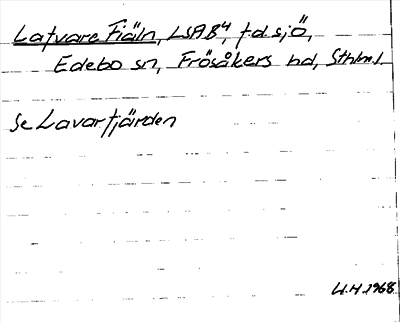 Latvare Fiäln, LSA B⁴, f.d. sjö,
Edebo sn, Frösåkers hd, Sthlm.l.
Se Lavartjärden
U.H. 1968